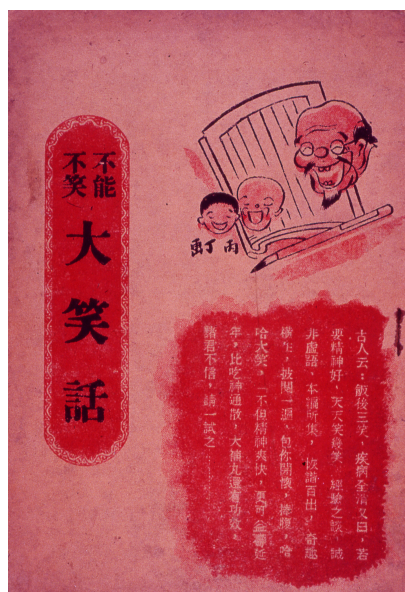 不能
不笑
大笑話
丙丁畫
古人云：飯後三笑，疾病全消又曰，若
要精神好，天天笑幾笑，經驗之談，誠
非虛語，本編所集，詼諧百出，奇趣
橫生，披閱一遍，包你開懷，捧腹，哈
哈大笑，「不但精神爽快，更可益壽延
年，比吃神通散，大補丸還有功效。
諸君不信，請一試之……